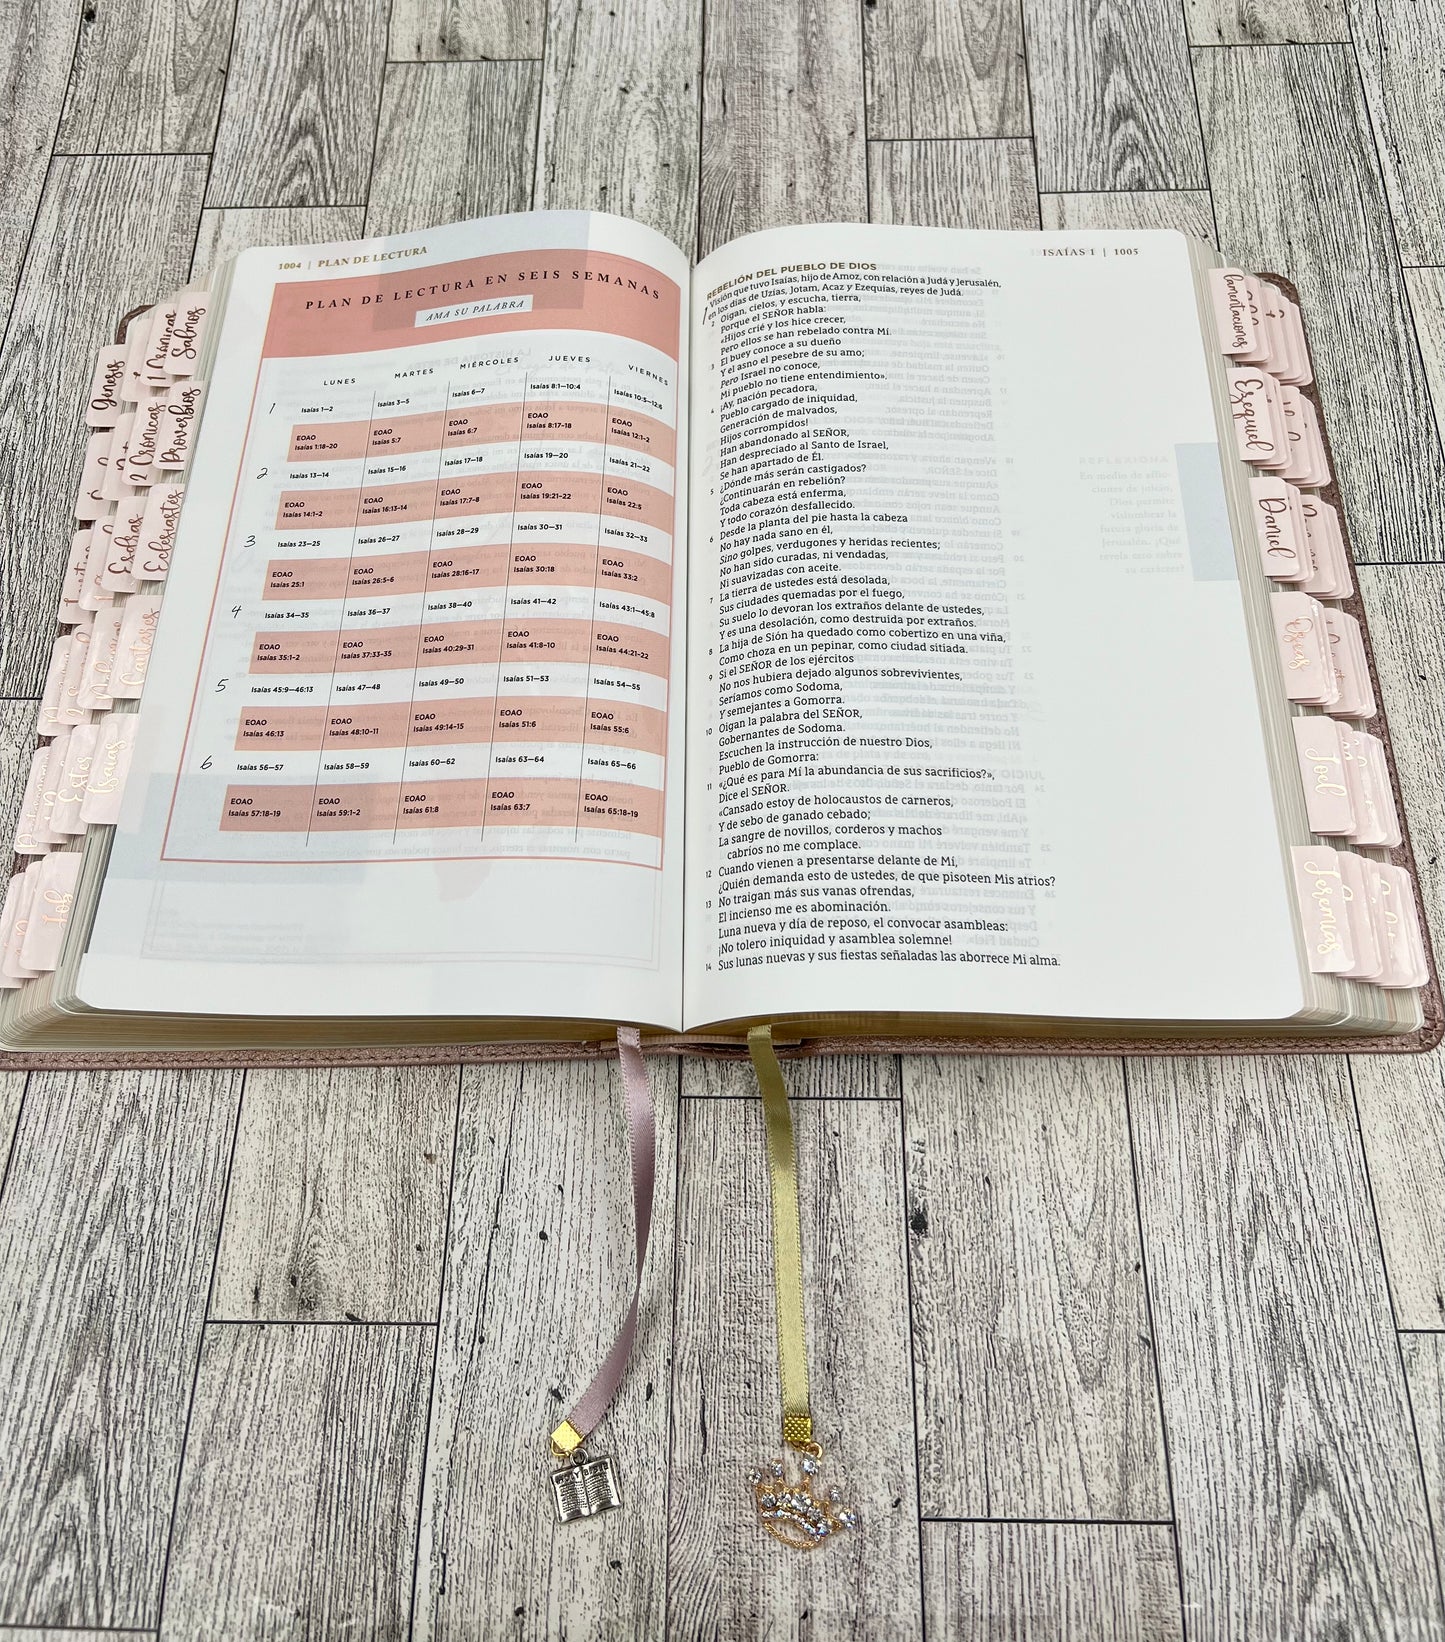 1004 | PLAN DE LECTURA
PLAN DE LECTURA EN SEIS SEMANAS
AMA SU PALABRA
LUNES MARTES MIÉRCOLES JUEVES VIERNES
1 Isaías 1—2 Isaías 3—5 Isaías 6—7 Isaías 8:1—10:4 Isaías 10:5—12:6
EOAO EOAO EOAO EOAO EOAO
Isaías 1:18-20 Isaías 5:7 Isaías 6:7 Isaías 8:17-18 Isaías 12:1-2
2 Isaías 13—14 Isaías 15—16 Isaías 17—18 Isaías 19—20 Isaías 21—22
EOAO EOAO EOAO EOAO EOAO
Isaías 14:1-2 Isaías 16:13-14 Isaías 17:7-8 Isaías 19:21-22 Isaías 22:5
3 Isaías 23—25 Isaías 26—27 Isaías 28—29 Isaías 30—31 Isaías 32—33
EOAO EOAO EOAO EOAO EOAO
Isaías 25:1 Isaías 26:5-6 Isaías 28:16-17 Isaías 30:18 Isaías 33:2
4 Isaías 34—35 Isaías 36—37 Isaías 38—40 Isaías 41—42 Isaías 43:1—45:8
EOAO EOAO EOAO EOAO EOAO
Isaías 35:1-2 Isaías 37:33-35 Isaías 40:29-31 Isaías 41:8-10 Isaías 44:21-22
5 Isaías 45:9—46:13 Isaías 47—48 Isaías 49—50 Isaías 51—53 Isaías 54—55
EOAO EOAO EOAO EOAO EOAO
Isaías 46:13 Isaías 48:10-11 Isaías 49:14-15 Isaías 51:6 Isaías 55:6
6 Isaías 56—57 Isaías 58—59 Isaías 60—62 Isaías 63—64 Isaías 65—66
EOAO EOAO EOAO EOAO EOAO
Isaías 57:18-19 Isaías 59:1-2 Isaías 61:8 Isaías 63:7 Isaías 65:18-19
ISAÍAS 1 | 1005
REBELIÓN DEL PUEBLO DE DIOS
1 Visión que tuvo Isaías, hijo de Amoz, con relación a Judá y Jerusalén,
en los días de Uzías, Jotam, Acaz y Ezequías, reyes de Judá.
2 Oigan, cielos, y escucha, tierra,
Porque el SEÑOR habla:
«Hijos crié y los hice crecer,
Pero ellos se han rebelado contra Mí.
3 El buey conoce a su dueño
Y el asno el pesebre de su amo;
Pero Israel no conoce,
Mi pueblo no tiene entendimiento».
4 ¡Ay, nación pecadora,
Pueblo cargado de iniquidad,
Generación de malvados,
Hijos corrompidos!
Han abandonado al SEÑOR,
Han despreciado al Santo de Israel,
Se han apartado de Él.
5 ¿Dónde más serán castigados?
¿Continuarán en rebelión?
Toda cabeza está enferma,
Y todo corazón desfallecido.
6 Desde la planta del pie hasta la cabeza
No hay nada sano en él,
Sino golpes, verdugones y heridas recientes;
No han sido curadas, ni vendadas,
Ni suavizadas con aceite.
7 La tierra de ustedes está desolada,
Sus ciudades quemadas por el fuego,
Su suelo lo devoran los extraños delante de ustedes,
Y es una desolación, como destruida por extraños.
8 La hija de Sión ha quedado como cobertizo en una viña,
Como choza en un pepinar, como ciudad sitiada.
9 Si el SEÑOR de los ejércitos
No nos hubiera dejado algunos sobrevivientes,
Seríamos como Sodoma,
Y semejantes a Gomorra.
10 Oigan la palabra del SEÑOR,
Gobernantes de Sodoma.
Escuchen la instrucción de nuestro Dios,
Pueblo de Gomorra:
11 «¿Qué es para Mí la abundancia de sus sacrificios?»,
Dice el SEÑOR.
«Cansado estoy de holocaustos de carneros,
Y de sebo de ganado cebado;
La sangre de novillos, corderos y machos
cabríos no me complace.
12 Cuando vienen a presentarse delante de Mí,
¿Quién demanda esto de ustedes, de que pisoteen Mis atrios?
13 No traigan más sus vanas ofrendas,
El incienso me es abominación.
Luna nueva y día de reposo, el convocar asambleas:
¡No tolero iniquidad y asamblea solemne!
14 Sus lunas nuevas y sus fiestas señaladas las aborrece Mi alma.
REFLEXIONA
Génesis
1 Crónicas
Salmos
2 Crónicas
Proverbios
Esdras
Eclesiastés
Cantares
Ester
Isaías
Job
lamentaciones
Ezequiel
Daniel
Oseas
Joel
Jeremías
HOLY BIBLE